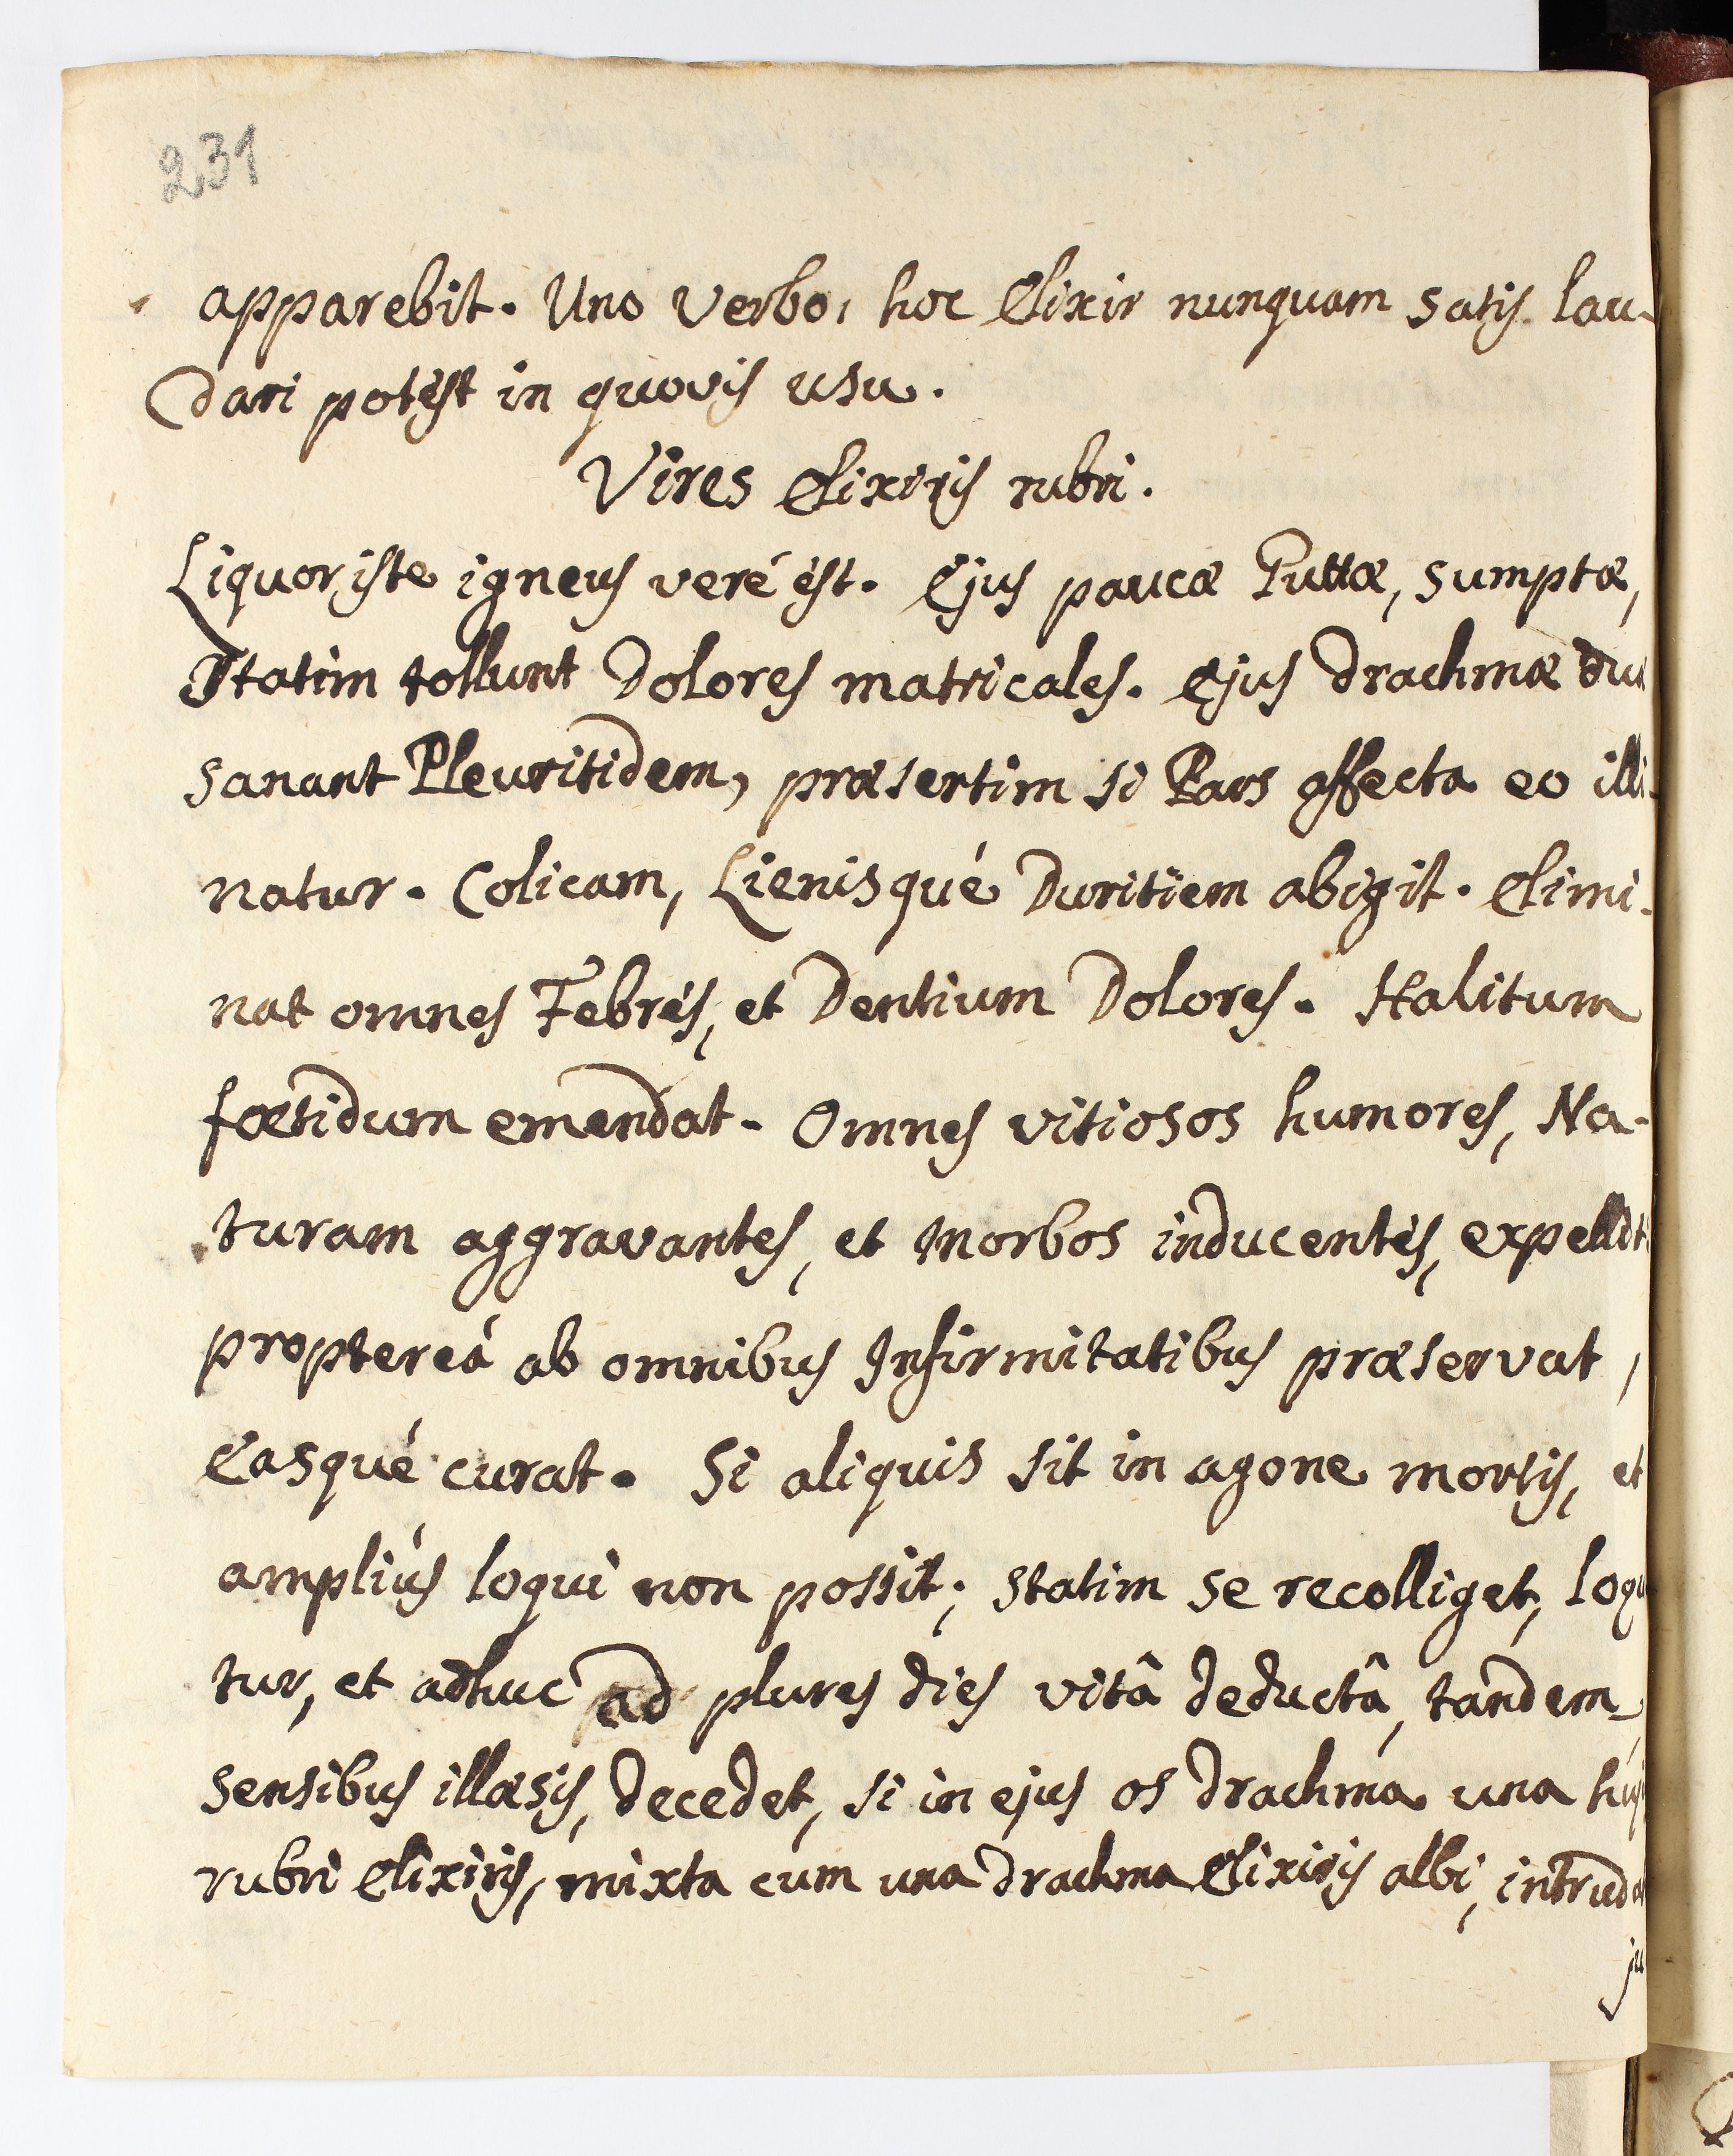 231
apparebit. Uno Verbo, hoc Elixir nunquam satis lau-
dari potest in quovis usu.
Vires Elixiris rubri.
Liquor iste igneus veré est. Ejus paucæ Guttæ, sumptæ,
Statim tollunt Dolores matricales. Ejus drachmæ
sanant Pleuritidem, præsertim si Pars affecta eo illi-
natur. Colicam, Lienisqué Duritiem abigit. Elimi-
nat omnes Febres, et Dentium Dolores. Halitum
fœtidum emendat. Omnes vitiosos humores, Na-
turam aggravantes, et morbos inducentes, expellit.
proptereá ab omnibus Infirmitatibus præservat,
Easqué curat. Si aliquis sit in agone mortis, et
ampliús loqui non possit; statim se recolliget,
tur, et adhuc ad plures dies vitâ deductâ, tandem,
sensibus illæsis, decedet, si in ejus os drachma una
rubri Elixiris, mixta cum una drachma Elixiris albi,